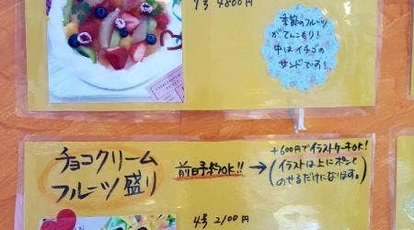 7号 4800円
季節のフルーツ
がてんこもり!
中はイチゴの
サンドです!
チョコクリーム
フルーツ盛り
前日予約OK!!
+600円でイラストケーキOK!
(イラストは上にポンと
のせるだけになります。)
4号 2100円